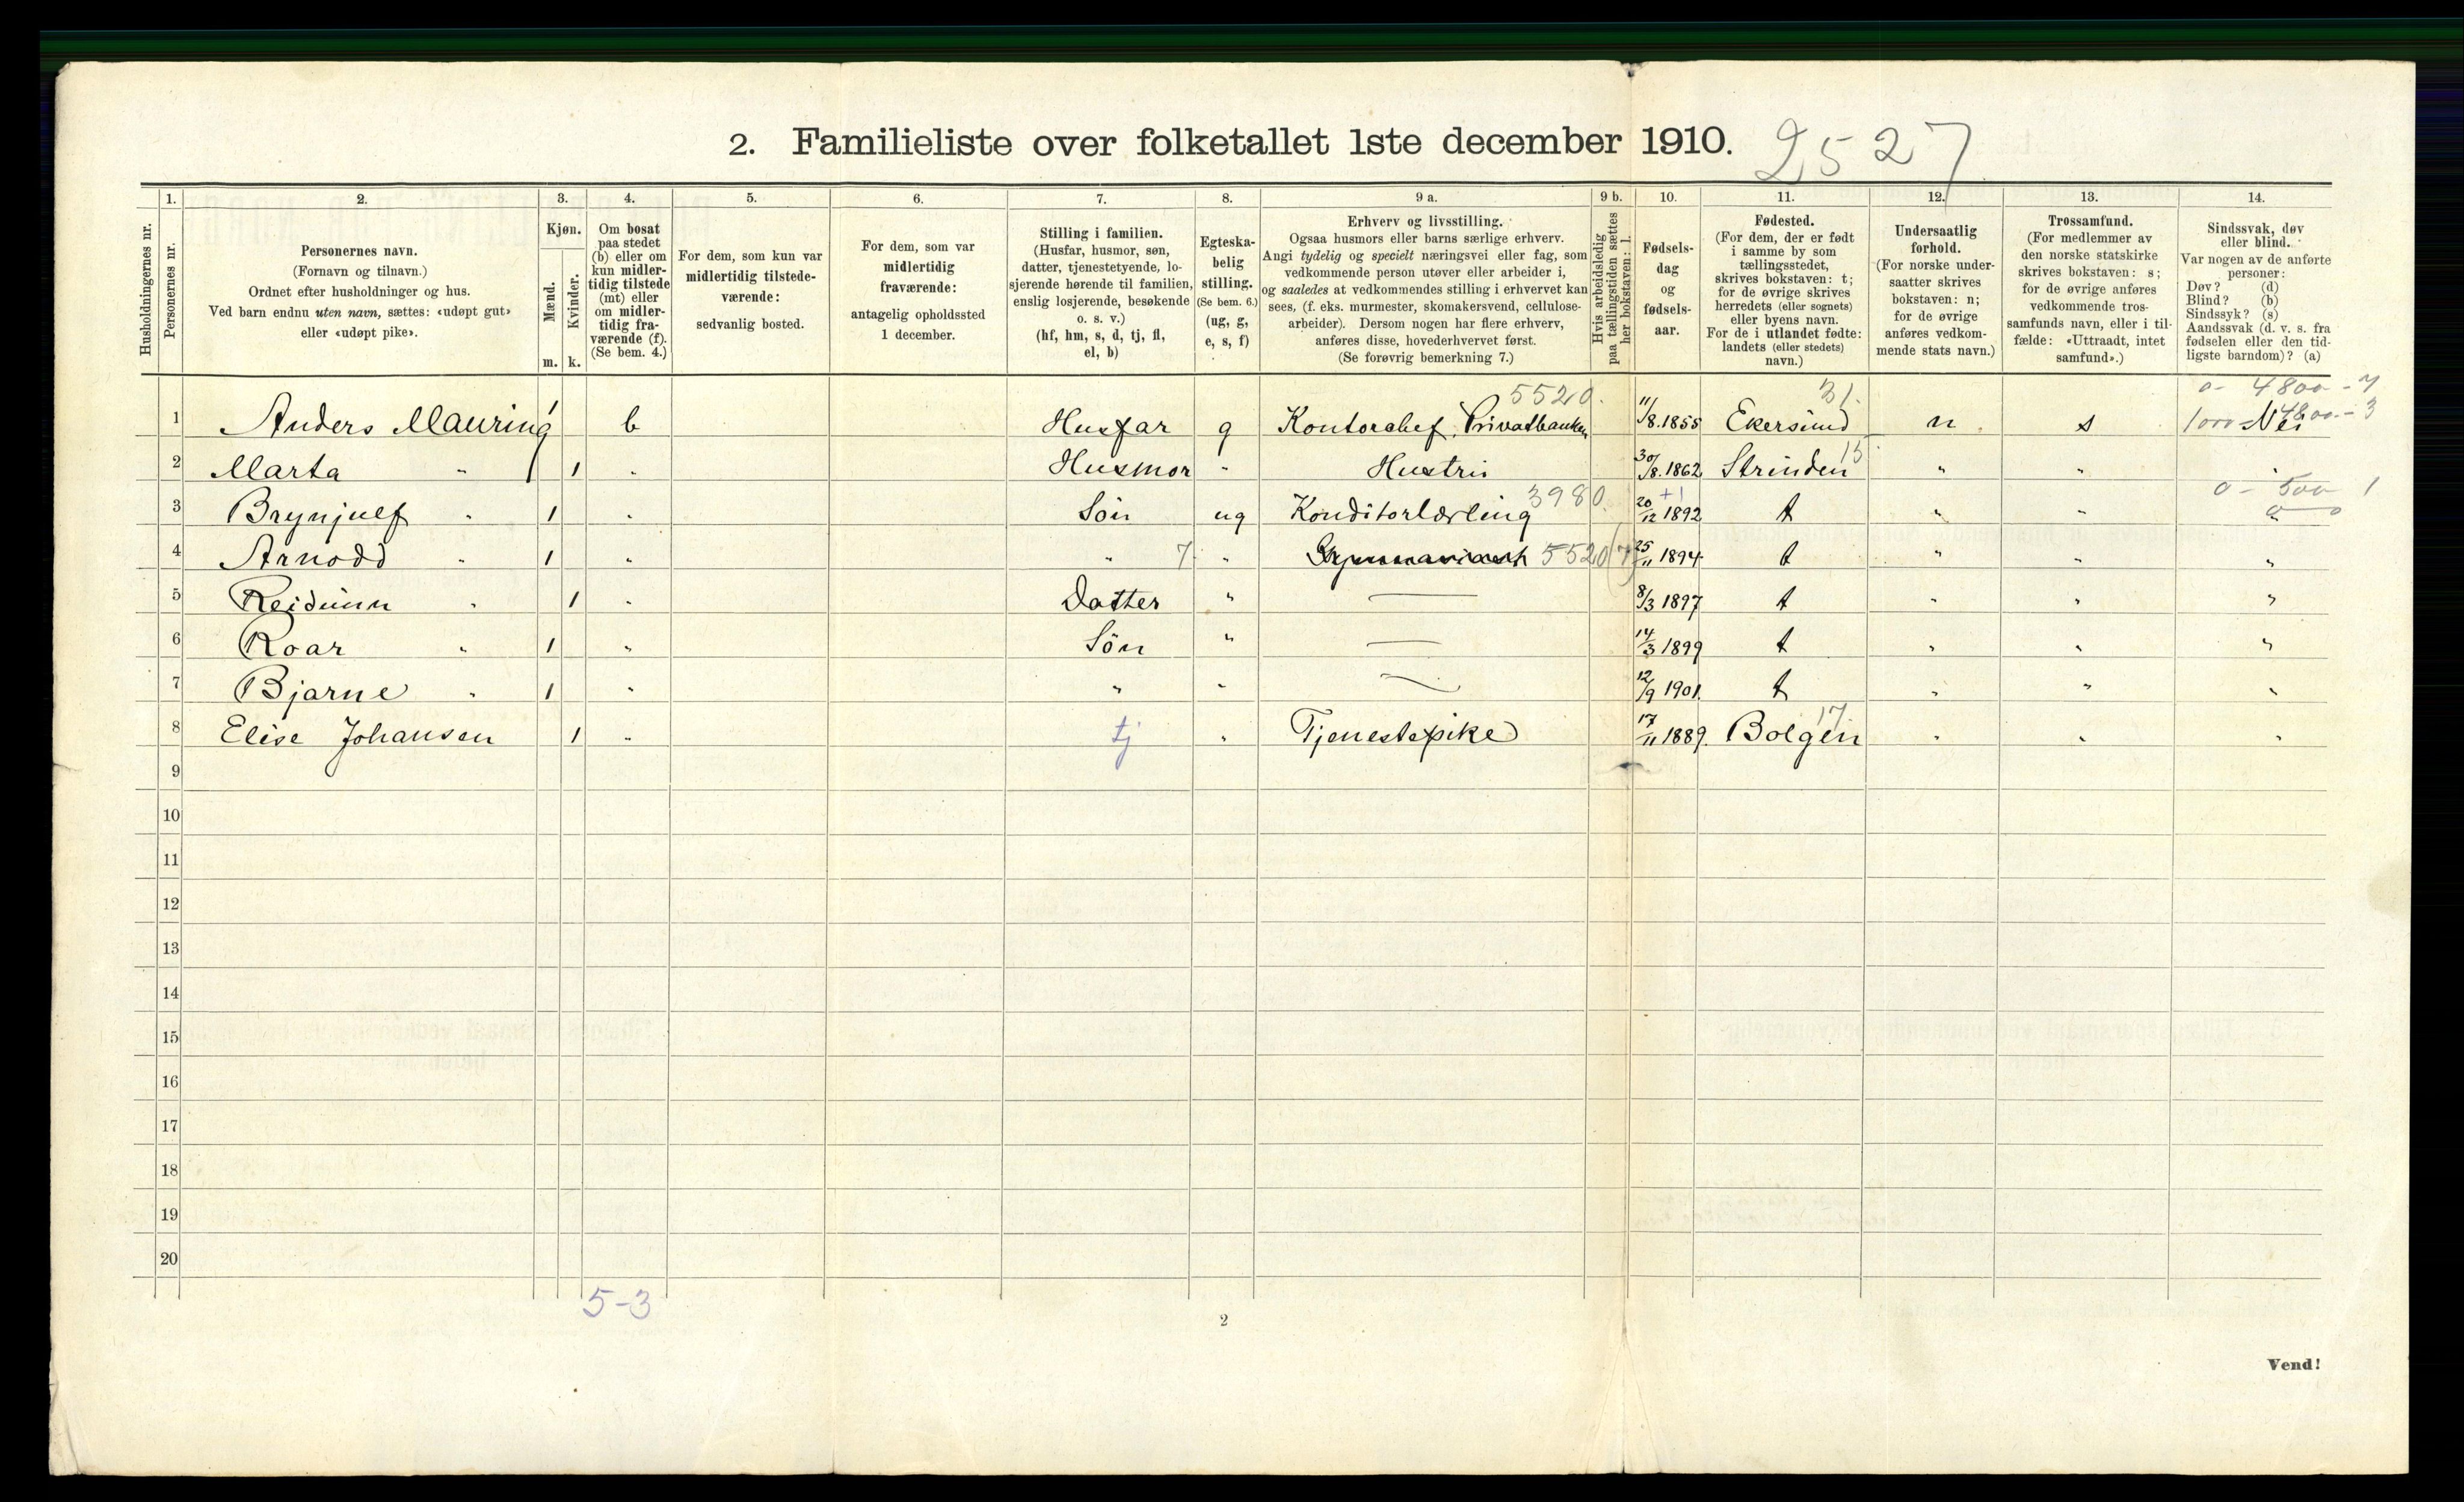 2. Familieliste over folketallet 1ste december 1910.
2527
Husholdningernes nr.
1. Personernes nr.
2. Personernes navn. (Fornavn og tilnavn.) Ordnet efter husholdninger og hus. Ved barn endnu uten navn, sættes: «udøpt gut» eller «udøpt pike».
3. Kjøn. Mænd. m. Kvinder. k.
4. Om bosat paa stedet (b) eller om kun midlertidig tilstede (mt) eller om midlertidig fraværende (f). (Se bem. 4.)
5. For dem, som kun var midlertidig tilstedeværende: sedvanlig bosted.
6. For dem, som var midlertidig fraværende: antagelig opholdssted 1 december.
7. Stilling i familien. (Husfar, husmor, søn, datter, tjenestetyende, losjerende hørende til familien, enslig losjerende, besøkende o. s. v.) (hf, hm, s, d, tj, fl, el, b)
8. Egteskabelig stilling. (Se bem. 6.) (ug, g, e, s, f)
9 a. Erhverv og livsstilling. Ogsaa husmors eller barns særlige erhverv. Angi tydelig og specielt næringsvei eller fag, som vedkommende person utøver eller arbeider i, og saaledes at vedkommendes stilling i erhvervet kan sees, (f. eks. murmester, skomakersvend, cellulosearbeider). Dersom nogen har flere erhverv, anføres disse, hovederhvervet først. (Se forøvrig bemerkning 7.)
9 b. Hvis arbeidsledig paa tællingstiden sættes her bokstaven: l.
10. Fødselsdag og fødselsaar.
11. Fødested. (For dem, der er født i samme by som tællingsstedet, skrives bokstaven: t; for de øvrige skrives herredets (eller sognets) eller byens navn. For de i utlandet fødte: landets (eller stedets) navn.)
12. Undersaatlig forhold. (For norske undersaatter skrives bokstaven: n; for de øvrige anføres vedkommende stats navn.)
13. Trossamfund. (For medlemmer av den norske statskirke skrives bokstaven: s; for de øvrige anføres vedkommende trossamfunds navn, eller i tilfælde: «Uttraadt, intet samfund».)
14. Sindssvak, døv eller blind. Var nogen av de anførte personer: Døv? (d) Blind? (b) Sindssyk? (s) Aandssvak (d. v. s. fra fødselen eller den tidligste barndom)? (a)
5520. 31. 0 - 4800 - 7
1 Anders Mauring 1 b Husfar g Kontorchef, Privatbanken 11/8.1855 Ekersund n. s 1000 - 4800 - 3 Nei
2 Marta " 1 " Husmor " Hustru 30/8.1862 Strinden 15 " " "
0 - 500 1
3 Brynjulf " 1 " Søn ug Konditorlærling 3980. 20/12 1892 t " " " 0 0
4 Arnodd " 1 " " 7 " Gymnasiast 5520 (7) 25/11 1894 t " " "
5 Reidunn " 1 " Datter " — 8/3 1897 t " " "
6 Roar " 1 " Søn " — 14/3 1899 t " " "
7 Bjarne " 1 " " " — 12/9 1901. t " " "
8 Elise Johansen 1 " tj " Tjenestepike 17/11 1889. Bolgen 17 " " "
9
10
11
12
13
14
15
16
17
18
19
20
5-3
2
Vend!